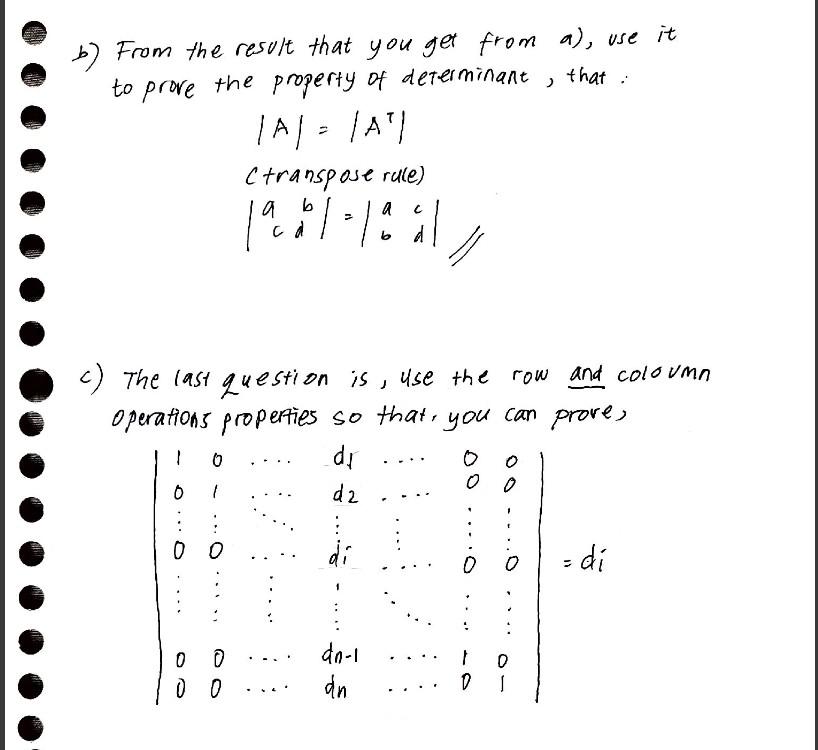 b) From the result that you get from a), use it
to prove the property of determinant, that :
|A| = |Aᵀ|
(transpose rule)
|a b| = |a c|
|c d|   |b d| //
c) The last question is, use the row and coloumn
operations properties so that, you can prove,
| 1 0 .... d1 .... 0 0 |
| 0 1 .... d2 .... 0 0 |
| ⋮ ⋮ ⋱ ⋮ ⋮ ⋮ ⋮ |
| 0 0 .... di .... 0 0 | = di
| ⋮ ⋮ ⋮ ⋮ ⋱ ⋮ ⋮ |
| 0 0 .... dn-1 .... 1 0 |
| 0 0 .... dn .... 0 1 |